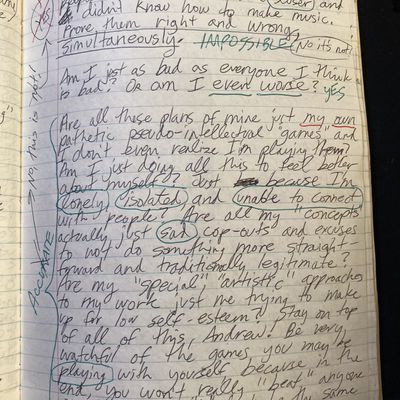 didn't know how to make music.
Prove them right and wrong,
simultaneously. IMPOSSIBLE (No it's not!
Am I just as bad as everyone I think
is bad? Or am I even worse? YES
Are all these plans of mine just my own
pathetic pseudo-intellectual "games" and
I don't even realize I'm playing them?
Am I just doing all this to feel better
about myself? Just because I'm
lonely, isolated and unable to connect
with people? Are all my "concepts"
actually just sad cop-outs and excuses
to not do something more straight-
forward and traditionally legitimate?
Are my "special" "artistic" approaches
to my work just me trying to make
up for low self-esteem? Stay on top
of all of this, Andrew! Be very
watchful of the games you may be
playing with yourself because in the
end, you won't really "beat" anyone
the same
No, this is not!
ACCURATE